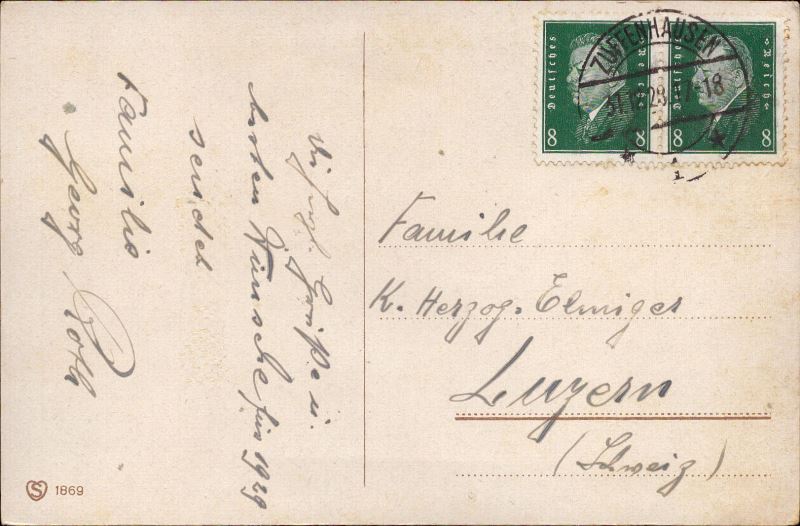 Die herzl. Grüße u.
besten Wünsche für 1929
sendet
Familie
Georg Roth
S 1869
Deutsches Reich
8
Deutsches Reich
8
ZUFFENHAUSEN
31.12.28. 17-18
1
Familie
K. Herzog-Elmiger
Luzern
(Schweiz)